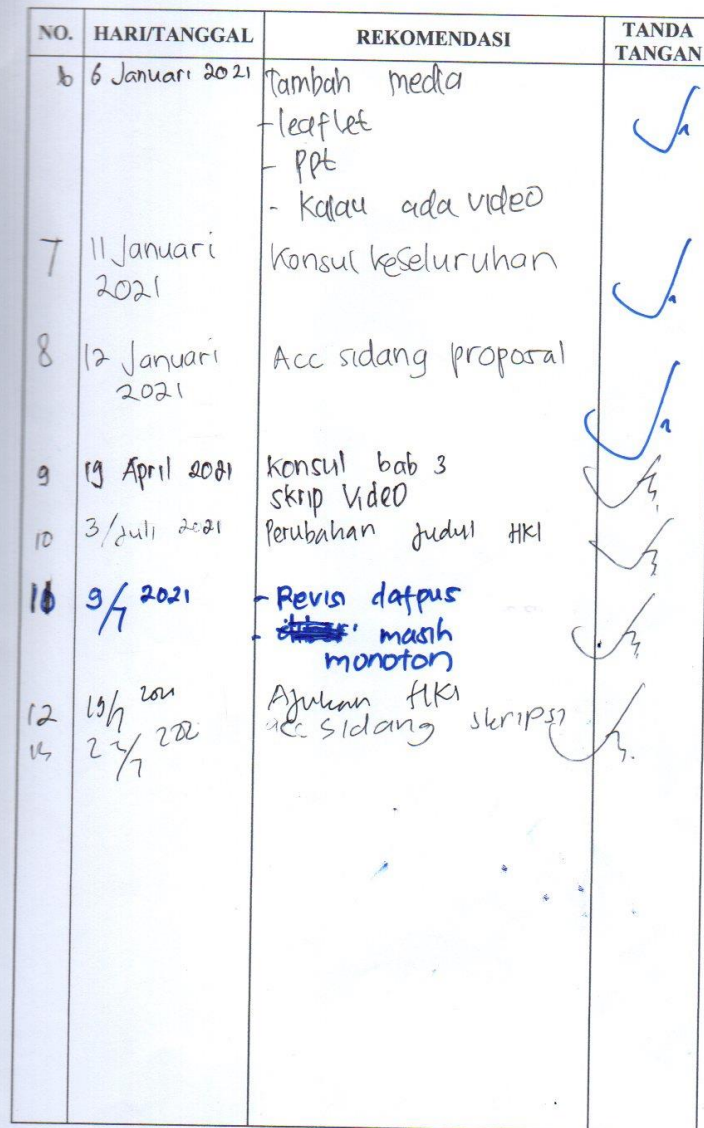 NO. HARI/TANGGAL REKOMENDASI TANDA TANGAN
6 6 Januari 2021 Tambah media
- leaflet
- ppt
- Kalau ada video
7 11 Januari 2021 Konsul keseluruhan
8 12 Januari 2021 Acc sidang proposal
9 19 April 2021 Konsul bab 3
skrip Video
10 3/Juli 2021 Perubahan Judul HKI
11 9/7 2021 - Revisi dafpus
- masih
monoton
12 19/7 Ajukan HKI
acc sidang skripsi